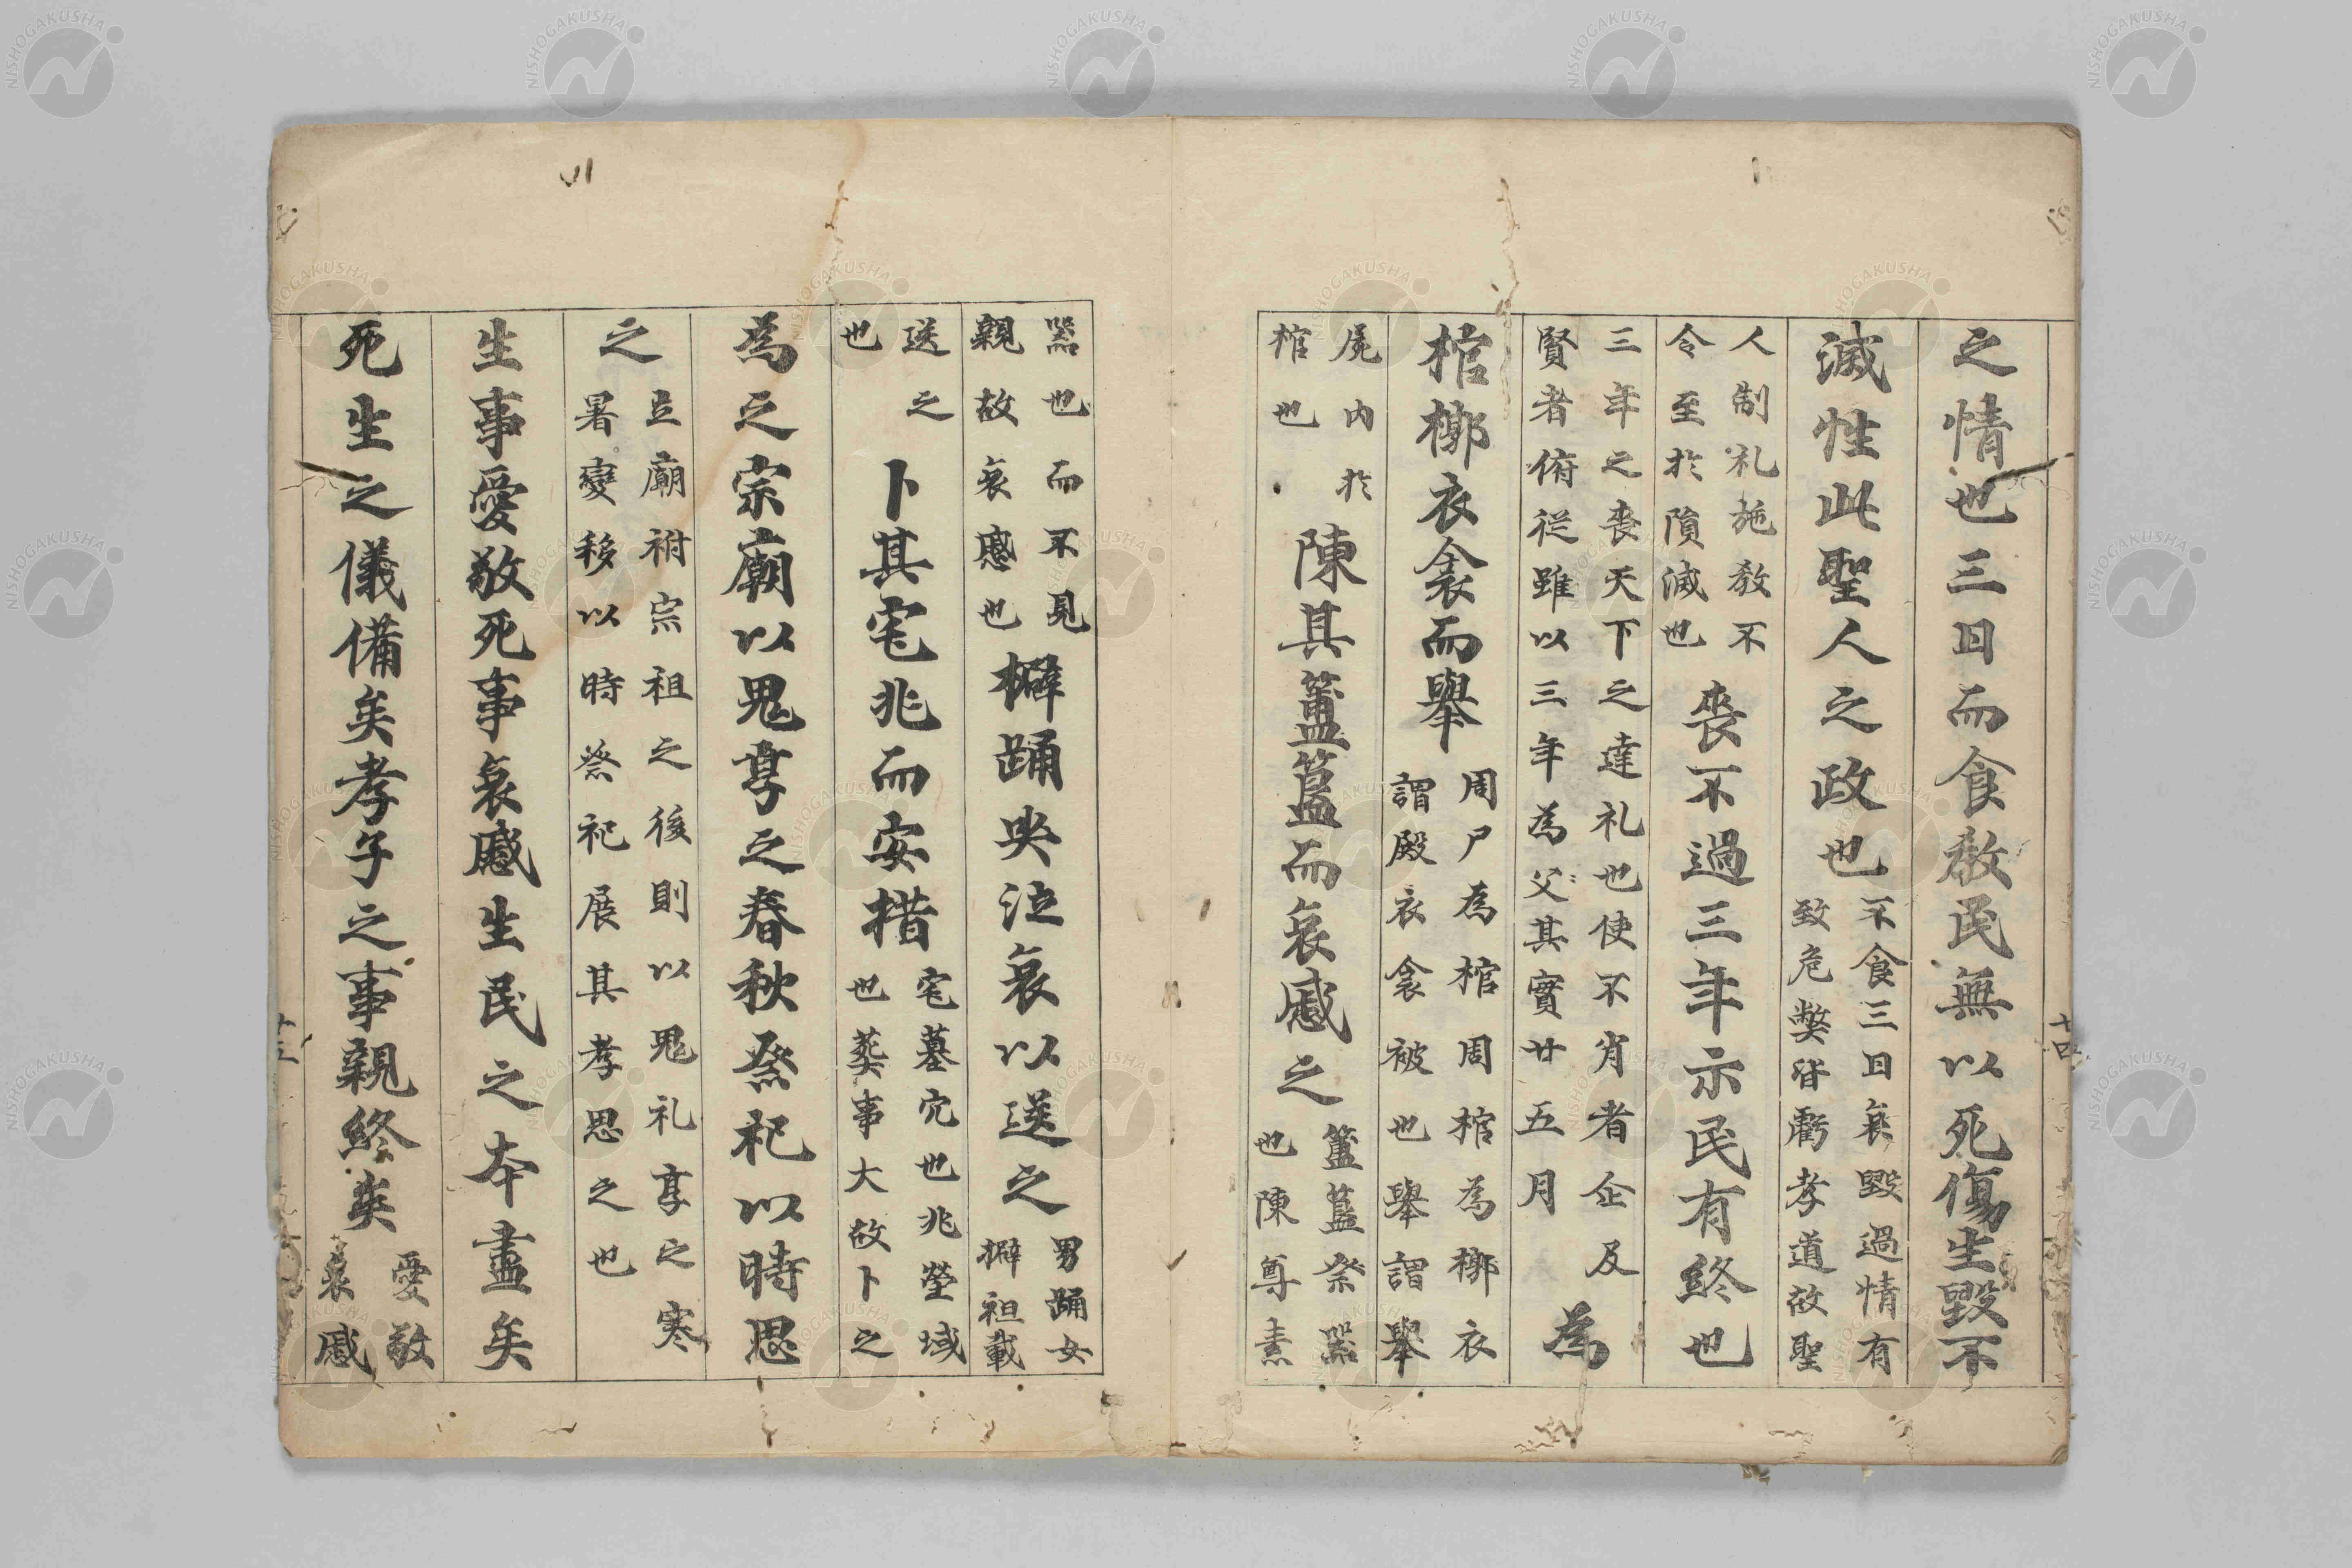 之情也三日而食教民無以死傷生毀不
滅性此聖人之政也
不食三日哀毀過情有
致危弊皆虧孝道故聖
人制礼施教不
令至於隕滅也
喪不過三年示民有終也
三年之喪天下之達礼也使不肖者企及
賢者俯從雖以三年為父其實廿五月
為
棺槨衣衾而舉
周尸為棺周棺為槨衣
謂殿衣衾被也舉謂舉
屍内於
棺也
陳其簠簋而哀慼之
簠簋祭器
也陳尊素
器也而不見
親故哀慼也
擗踊哭泣哀以送之
男踊女
擗祖載
送之
也
卜其宅兆而安措
宅墓穴也兆塋域
也葬事大故卜之
為之宗廟以鬼享之春秋祭祀以時思
之
立廟祔宗祖之後則以鬼礼享之寒
暑變移以時祭祀展其孝思之也
生事愛敬死事哀慼生民之本盡矣
死生之儀備矣孝子之事親終矣
愛敬
哀慼
十四
NISHOGAKUSHA